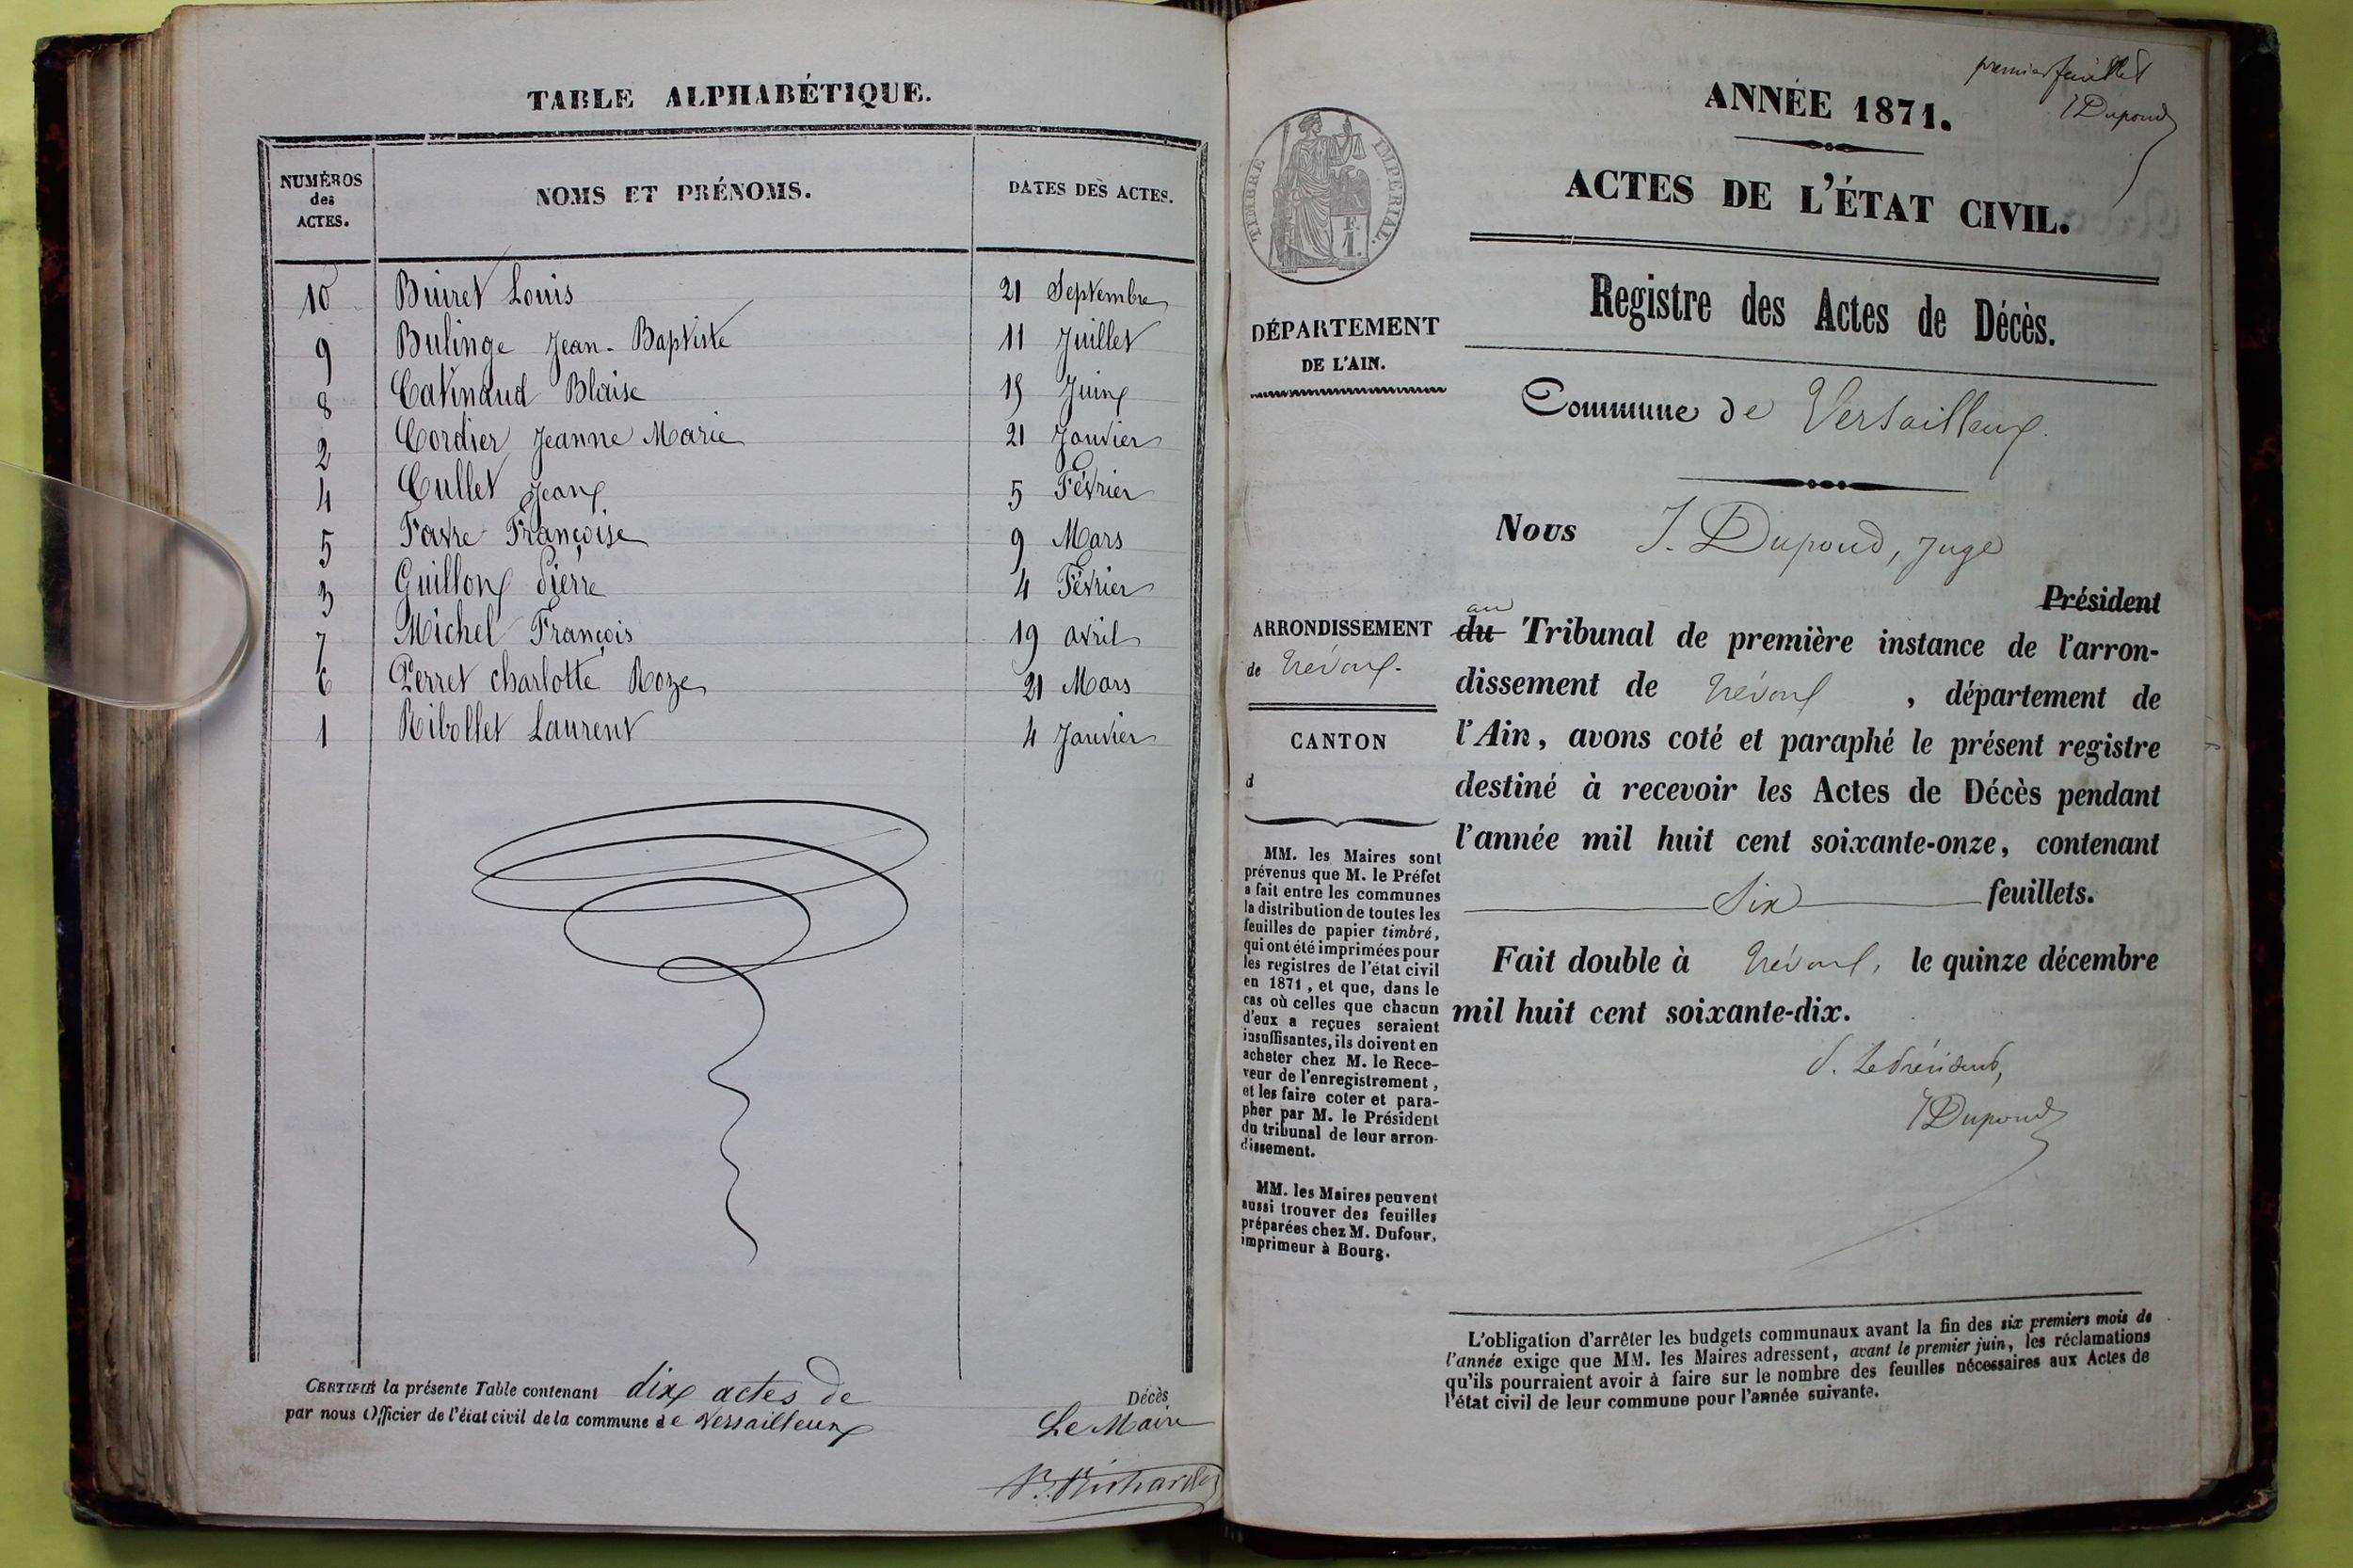 TABLE ALPHABÉTIQUE.
NUMÉROS
des
ACTES.
NOMS ET PRÉNOMS.
DATES DES ACTES.
10 Buiret Louis 21 Septembre
9 Bulinge Jean-Baptiste 11 Juillet
8 Catinaud Blaise 15 Juin
2 Cordier Jeanne Marie 21 Janvier
4 Cullet Jean 5 Février
5 Favre Françoise 9 Mars
3 Guillon Pierre 4 Février
7 Michel François 19 avril
6 Perret charlotte Roze 21 Mars
1 Ribollet Laurent 4 Janvier
CERTIFIÉ la présente Table contenant dix actes de Décès
par nous Officier de l'état civil de la commune de Versailleux
Le Maire
premier feuillet
J Dupond
ANNÉE 1871.
ACTES DE L'ÉTAT CIVIL.
TIMBRE IMPÉRIAL.
F.
1.
Registre des Actes de Décès.
DÉPARTEMENT
DE L'AIN.
Commune de Versailleux.
Nous J. Dupond, juge
Président
au
du Tribunal de première instance de l'arron-
dissement de Trévoux, département de
l'Ain, avons coté et paraphé le présent registre
destiné à recevoir les Actes de Décès pendant
l'année mil huit cent soixante-onze, contenant
Six feuillets.
Fait double à Trévoux, le quinze décembre
mil huit cent soixante-dix.
P. Le Président,
J Dupond
ARRONDISSEMENT
de Trévoux.
CANTON
d
MM. les Maires sont
prévenus que M. le Préfet
a fait entre les communes
la distribution de toutes les
feuilles de papier timbré,
qui ont été imprimées pour
les registres de l'état civil
en 1871, et que, dans le
cas où celles que chacun
d'eux a reçues seraient
insuffisantes, ils doivent en
acheter chez M. le Rece-
veur de l'enregistrement,
et les faire coter et para-
pher par M. le Président
du tribunal de leur arron-
dissement.
MM. les Maires peuvent
aussi trouver des feuilles
préparées chez M. Dufour,
imprimeur à Bourg.
L'obligation d'arrêter les budgets communaux avant la fin des six premiers mois de
l'année exige que MM. les Maires adressent, avant le premier juin, les réclamations
qu'ils pourraient avoir à faire sur le nombre des feuilles nécessaires aux Actes de
l'état civil de leur commune pour l'année suivante.